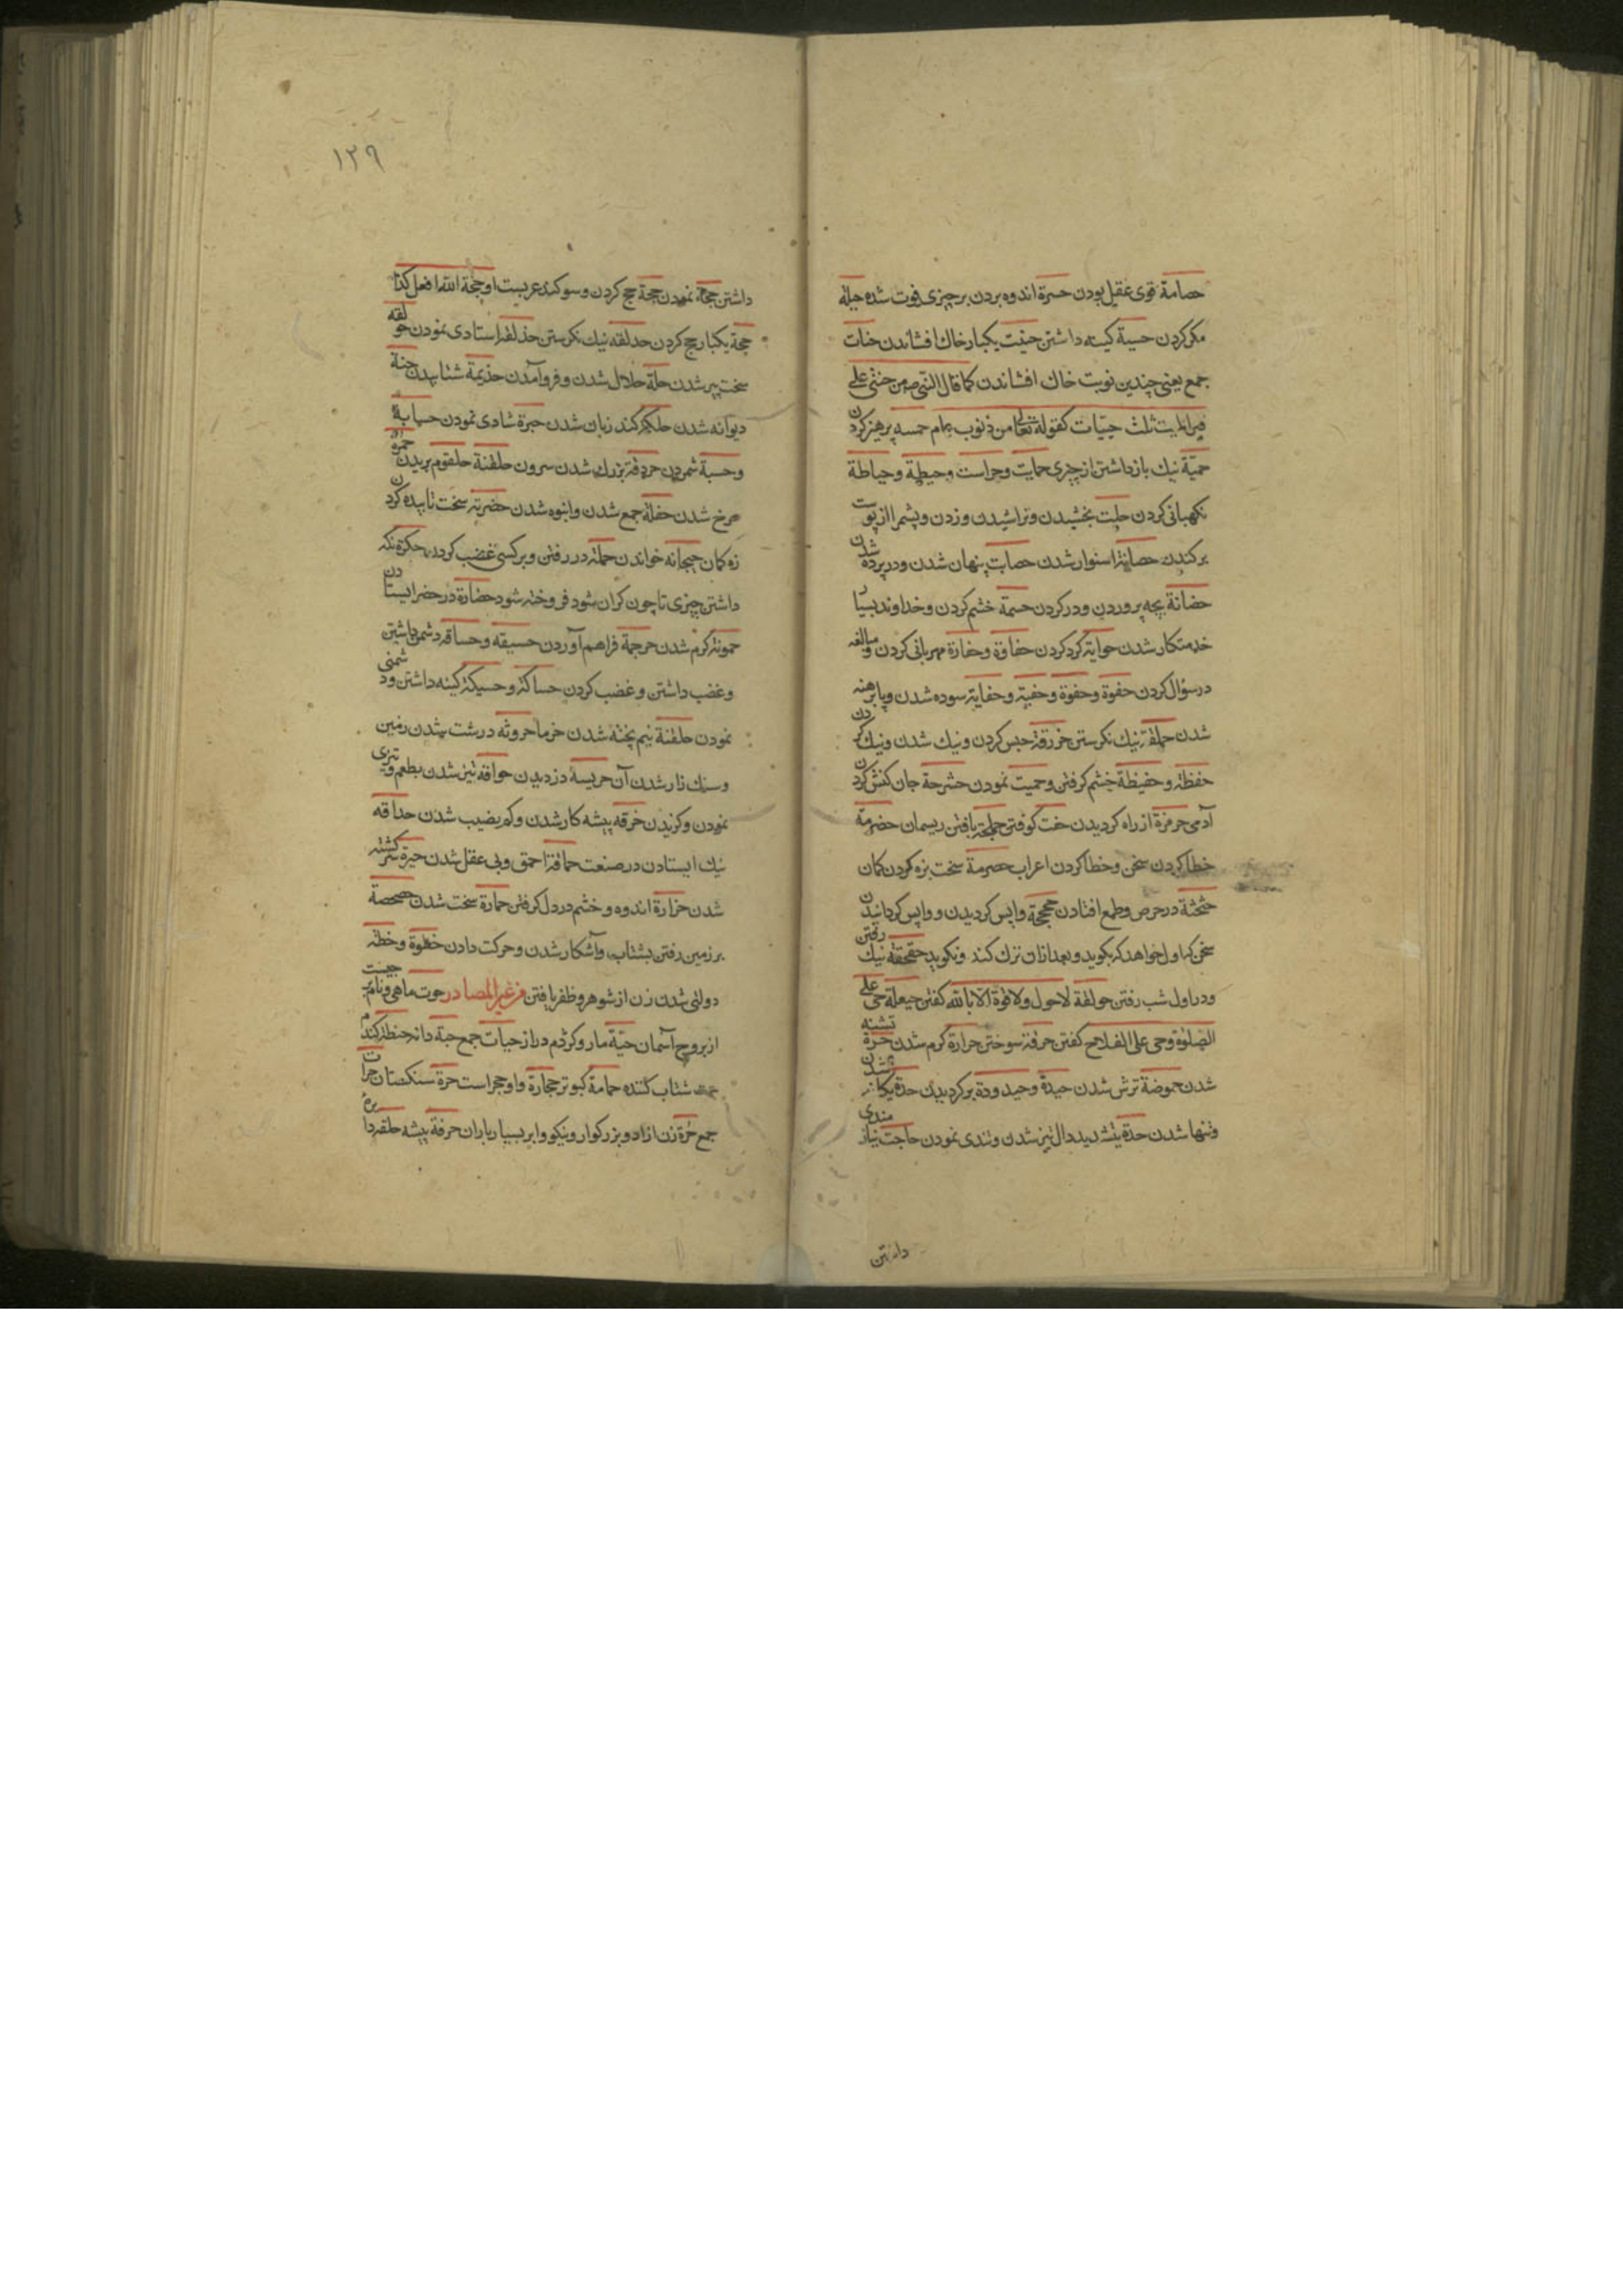 حصامة قوی عقل بودن حسرة اندوه بردن بر چیزی فوت شده حیلة
مکر کردن حسبة کیسه داشتن حثیت یکبار خاک افشاندن حثات
جمع یعنی چندین نوبت خاک افشاندن کما قال النبی من حثی علی
قبر المیت ثلث حثیات کفوله تعالی من ذنوب بمام حمسه پرهیز کردن
حمیّة نیک باز داشتن از چیزی حمایت و حراست وحیطة و حیاطة
نکهبانی کردن حلیت بخشیدن و تراشیدن و زدن و پشم را از پوست
بر کندن حصانة استوار شدن حصابت پنهان شدن و در پرده شدن
حضانة بچه پروردن و در کردن حشمة خشم کردن و خداوند بسیار
خدمتکار شدن حوایة کرد کردن حفاوة وحفارة مهربانی کردن و مبالغه
در سؤال کردن حفوة وحفوة وحفیة وحفایة سوده شدن و پا برهنه
شدن حملقة نیک نکرستن حزرقة حبس کردن و نیک شدن و نیک کردن
حفظة و حفیظة خشم کرفتن و حمیت نمودن حشرجة جان کنش کردن
آدمی حرمزة از راه کردیدن حت کوفتن حملجة بافتن ریسمان حضرمة
خطا کردن سخن و خطا کردن اعراب حصرمة سخت بزه کردن کمان
حثحثة در حرص و طمع افتادن حجحجة واپس کردیدن و واپس کردانیدن
سخن که اول خواهد که بکوید و بعد ازان ترک کند و نکوید حقحقة نیک رفتن
و در اول شب رفتن حولقة لا حول ولا قوة الا بالله کفتن حیعلة حی علی
الصلوة وحی علی الفلاح کفتن حرقة سوختن حرارة کرم شدن حرة تشنه
شدن حموضة ترش شدن حیدة وحیدودة بر کردیدن حدة یکانه شدن
و تنها شدن حدة بتشدید دال تیز شدن و تندی نمودن حاجت نیازمندی
داشتن
١٢٩
داشتن حجاة نمودن حجة حج کردن و سوکند عربیست او حجة الله افعل کذا
حجة یکبار حج کردن حدلقه نیک نکرستن حذلقة استادی نمودن حولقه
سخت پیر شدن حلة حلال شدن و فرو آمدن حذیمة شتابیدن جنة
دیوانه شدن حلکة کند زبان شدن حبرة شادی نمودن حسابة
وحسبة شمردن حردقة بزرک شدن سرون حلقنة حلقوم بریدن حمرة
سرخ شدن حفلة جمع شدن و انبوه شدن حضربة سخت تابیده کردن
زه کمان حیحانه خواندن حملة در رفتن و بر کسی غضب کردن حکرة نکه
داشتن چیزی تا چون کران شود فروخته شود حضارة در حضر ایستادن
حموتة کرم شدن حرجمة فراهم آوردن حسیقه وحساقه دشمن داشتن
و غضب داشتن و غضب کردن حساکة وحسیکة کینه داشتن و دشمنی
نمودن حلقنة نیم پخته شدن خرما حروثه درشت شدن زمین
و سنک زار شدن آن حریسة دزدیدن حواقه تیز شدن بطعم و تیزی
نمودن و کزیدن حرقه پیشه کار شدن و کم نصیب شدن حداقه
نیک ایستادن در صنعت حماقة احمق و بی عقل شدن حیرة سر کشته
شدن حزارة اندوه و خشم در دل کرفتن حمارة سخت شدن حصحصة
بر زمین رفتن بشتاب و آشکار شدن و حرکت دادن حظوة وحظة
دولتی شدن زن از شوهر و ظفر یافتن من غیر المصادر حوت ماهی و نام برجیست
از بروج آسمان حیّة مار و کژدم دراز حیات جمع حبة دانه حنطة کندم
شتاب کننده حمامة کبوتر حجارة واو حجر است حرة سنکستان حرات
جمع حرة زن ازاد و بزرکوار و نیکو و ابر بسیار باران حرفة پیشه حلقه دایره